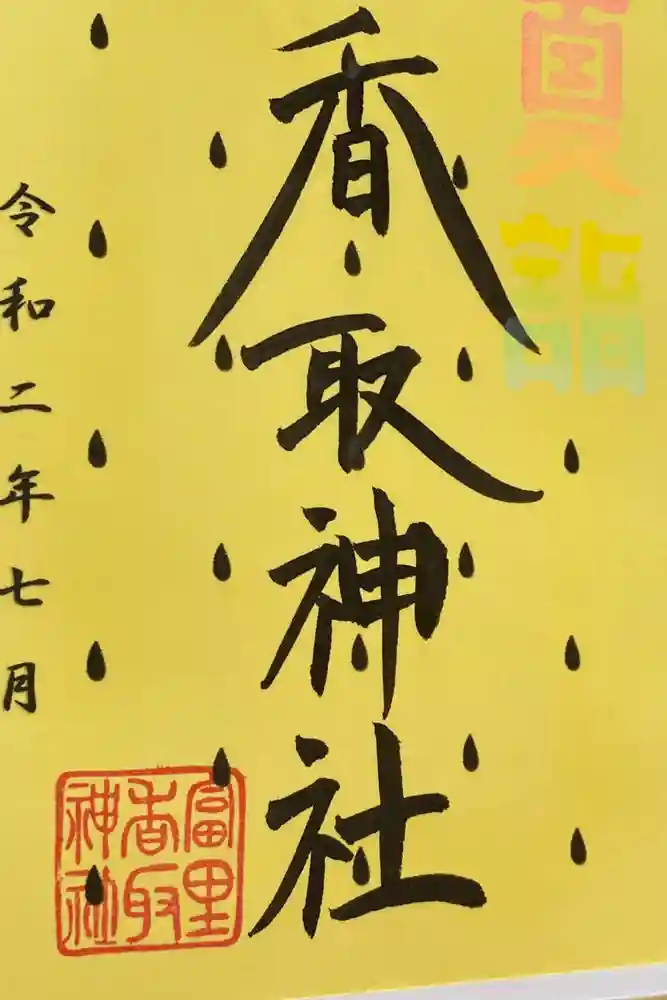 夏詣
香取神社
令和二年七月
富里
香取
神社